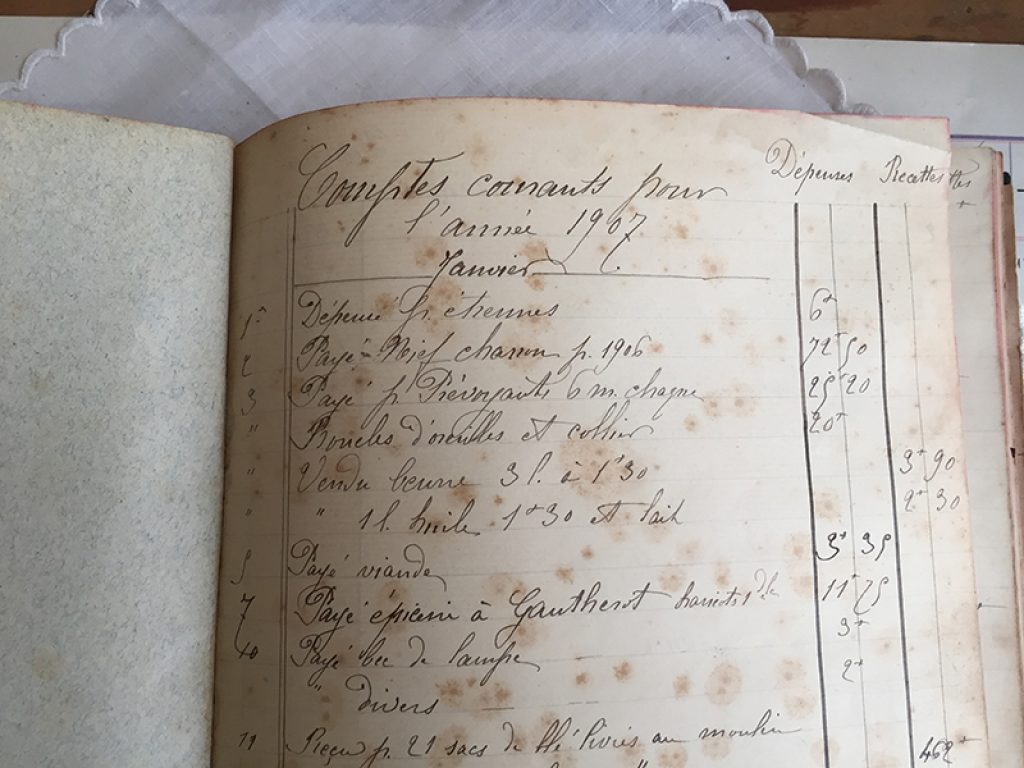 Comptes courants pour Dépenses Recettes
l'année 1907
Janvier
1er Dépensé pr étrennes 6f
2 Payé charron p. 1906 72f 50
3 Payé pr Prévoyants 6 m. chaque 25f 20
" Boucles d'oreilles et collier 20f
" Vendu beurre 3 l. à 1f30 3f 90
" " 1 l. huile 1f30 et lait 2f 30
5 Payé viande 3f 35
7 Payé épicerie à Gautherot haricots 11f 75
10 Payé bec de lampe 3f
" divers 2f
11 Reçu p. 21 sacs de blé livrés au moulin 462f